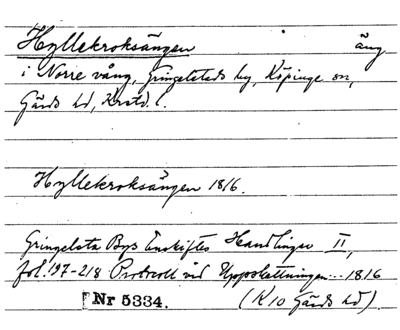 Hyllekroksängen äng
i Norre vång, Gringelstads by, Köpinge sn,
Gärds hd, Krstd. l.
Hyllekroksängen 1816.
Gringelsta Bys Enskiftes Handlingar II,
fol. 197-218 Protocoll vid Uppskattningen... 1816
Nr 5334. (K 10 Gärds hd)